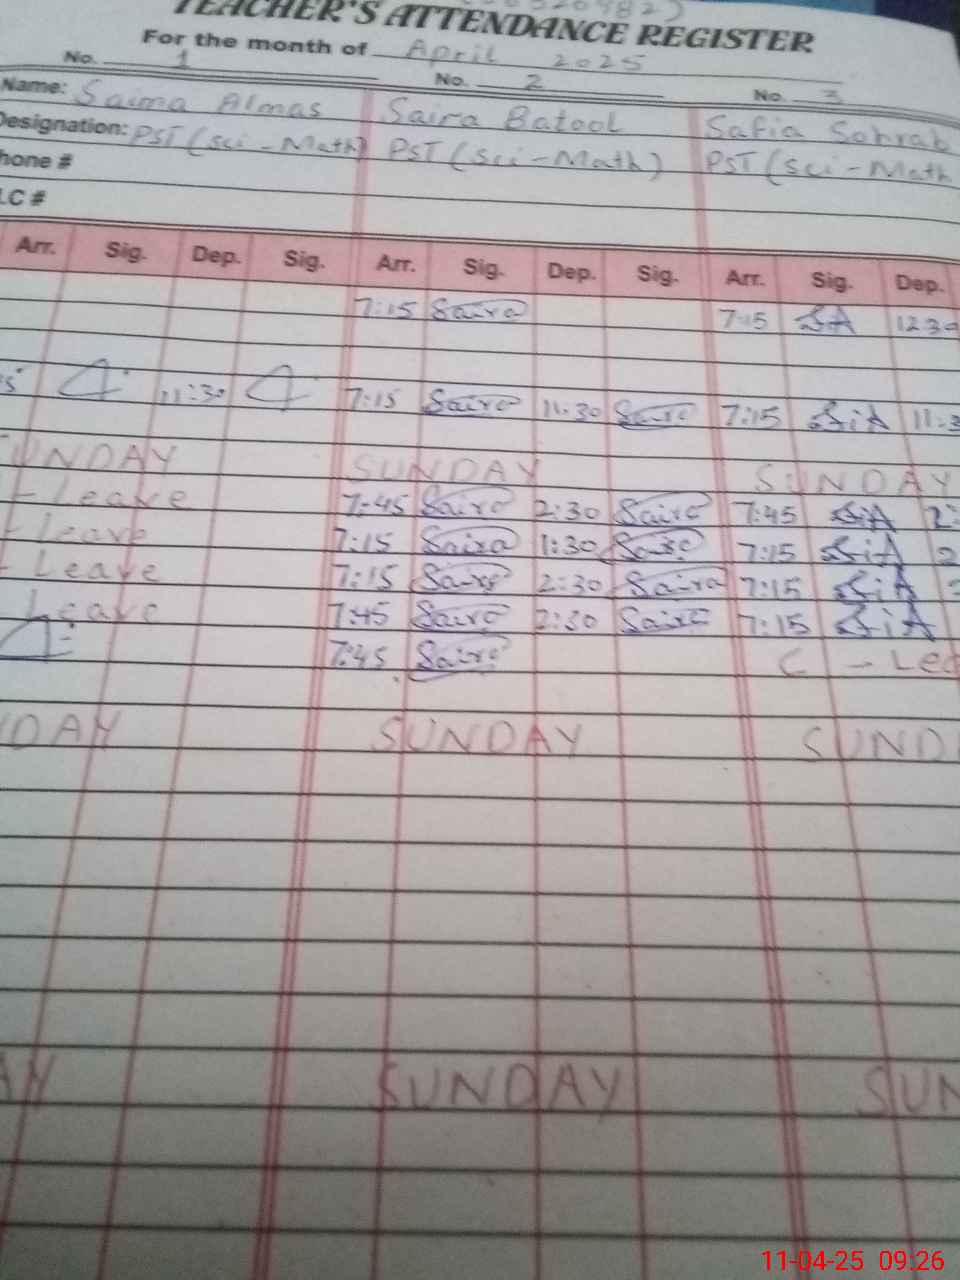 TEACHER'S ATTENDANCE REGISTER
For the month of April 2025
No. 1 No. 2 No. 3
Name: Saima Almas Saira Batool Safia Sohrab
Designation: PST (Sci-Math) PST (Sci-Math) PST (Sci-Math
hone #
I.C #
Arr. Sig. Dep. Sig. Arr. Sig. Dep. Sig. Arr. Sig. Dep.
7:15 Saira 7:15 SA 12:30
11:30 7:15 Saira 11:30 Saira 7:15 SiA 11:3
UNDAY SUNDAY SUNDAY
Leave 7:45 Saira 2:30 Saira 7:45 SiA 2:
Leave 7:15 Saira 1:30 Saira 7:15 SiA 2
Leave 7:15 Saira 2:30 Saira 7:15 SiA
Leave 7:45 Saira 2:30 Saira 7:15 SiA
7:45 Saira C - Lea
DAY SUNDAY SUND
AY SUNDAY SUN
11-04-25 09:26